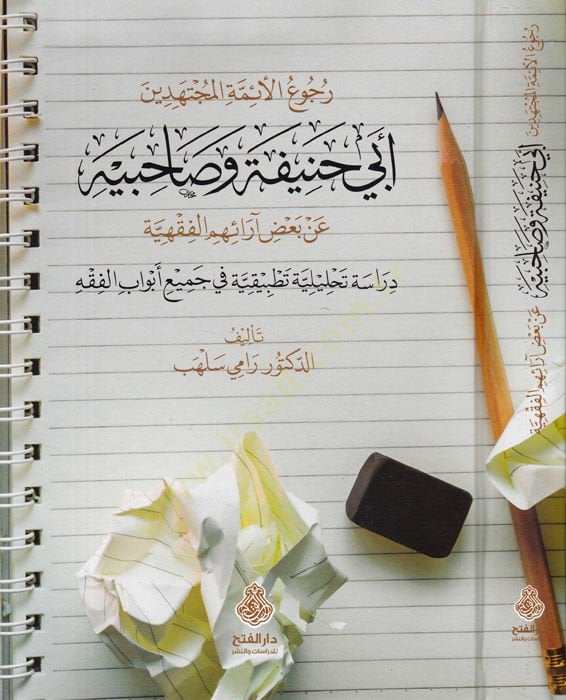 رُجُوعُ الأَئِمَّةِ المُجْتَهِدِينَ
أَبِي حَنِيفَةَ وَصَاحِبَيْهِ
عَنْ بَعْضِ آرَائِهِمِ الفِقْهِيَّةِ
دِرَاسَة تَحْلِيلِيَّة تَطْبِيقِيَّة فِي جَمِيْعِ أَبْوَابِ الفِقْهِ
تَأْلِيفُ
الدكتُور رَامِي سَلْهَب
دار الفتح
للدراسات والنشر
رُجُوعُ الأَئِمَّةِ المُجْتَهِدِينَ
أَبِي حَنِيفَةَ وَصَاحِبَيْهِ
عَنْ بَعْضِ آرَائِهِمِ الفِقْهِيَّةِ
دار الفتح
للدراسات والنشر